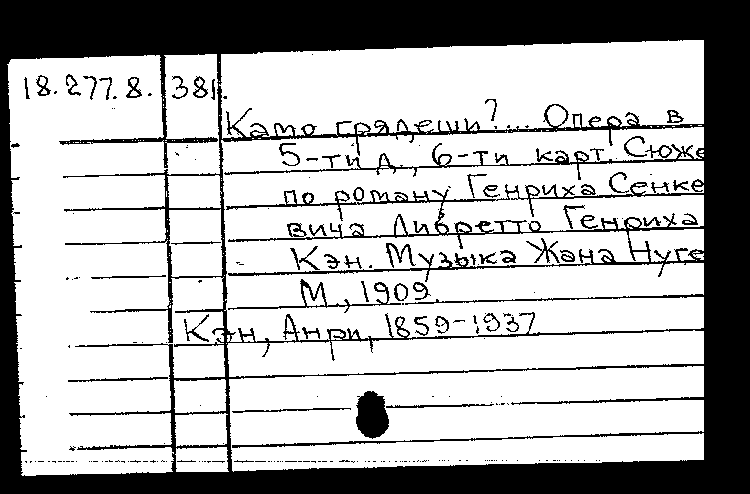 18.277.8. 381.
Камо грядеши?... Опера в
5-ти д., 6-ти карт. Сюже
по роману Генриха Сенке
вича Либретто Генриха
Кэн. Музыка Жана Нуге
М., 1909.
Кэн, Анри, 1859-1937